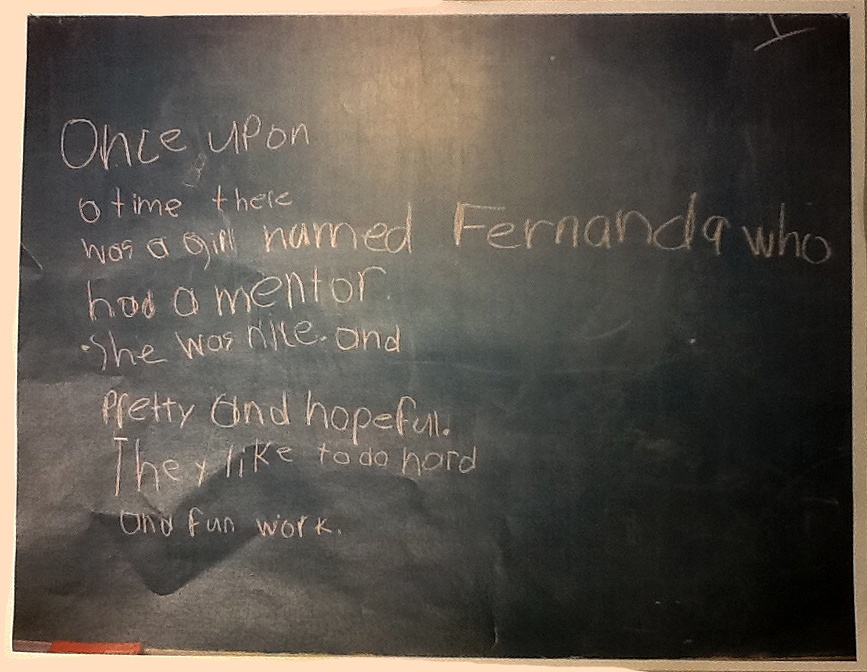 Once upon
a time there
was a girl named Fernanda who
had a mentor.
She was nice. and
pretty and hopeful.
They like to do hard
and fun work.